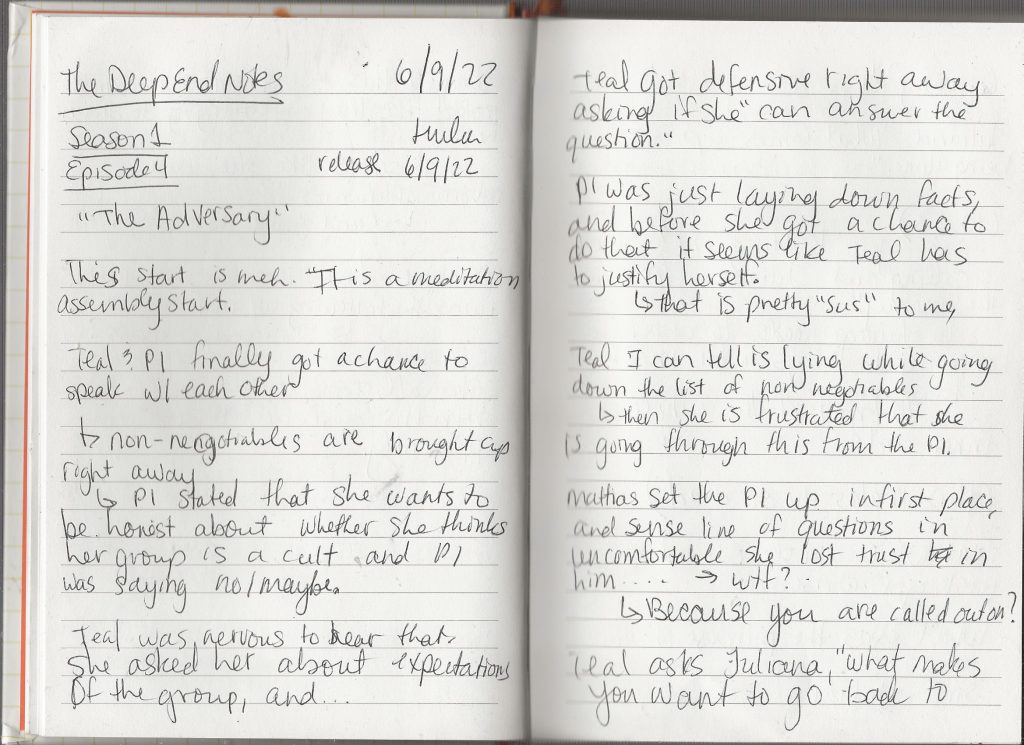 The Deep End Notes 6/9/22
Season 1 hulu
Episode 4 release 6/9/22
"The Adversary"
This start is meh. "It is a meditation
assembly start.
Teal & PI finally got a chance to
speak w/ each other
↳ non-negotiables are brought up
right away
↳ PI stated that she wants to
be honest about whether she thinks
her group is a cult and PI
was saying no/maybe.
Teal was nervous to hear that.
She asked her about expectations
of the group, and...
Teal got defensive right away
asking if she "can answer the
question."
PI was just laying down facts,
and before she got a chance to
do that it seems like Teal has
to justify herself.
↳ that is pretty "sus" to me,
Teal I can tell is lying while going
down the list of non negotiables
↳ then she is frustrated that she
is going through this from the PI.
Mathias set the PI up in first place,
and sense line of questions in
uncomfortable she lost trust in
him.... → wtf?
↳ Because you are called out on?
Teal asks Juliana, "what makes
you want to go back to